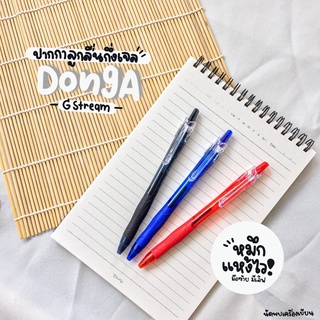 ปากกาลูกลื่นกึ่งเจล
DongA
G Stream
หมึก
แห้งไว!
มือซ้าย มีเลิฟ
นัดพบเครื่องเขียน